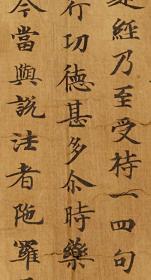 經乃至受持一四句
行功德甚多尒時藥
今當與說法者陁羅